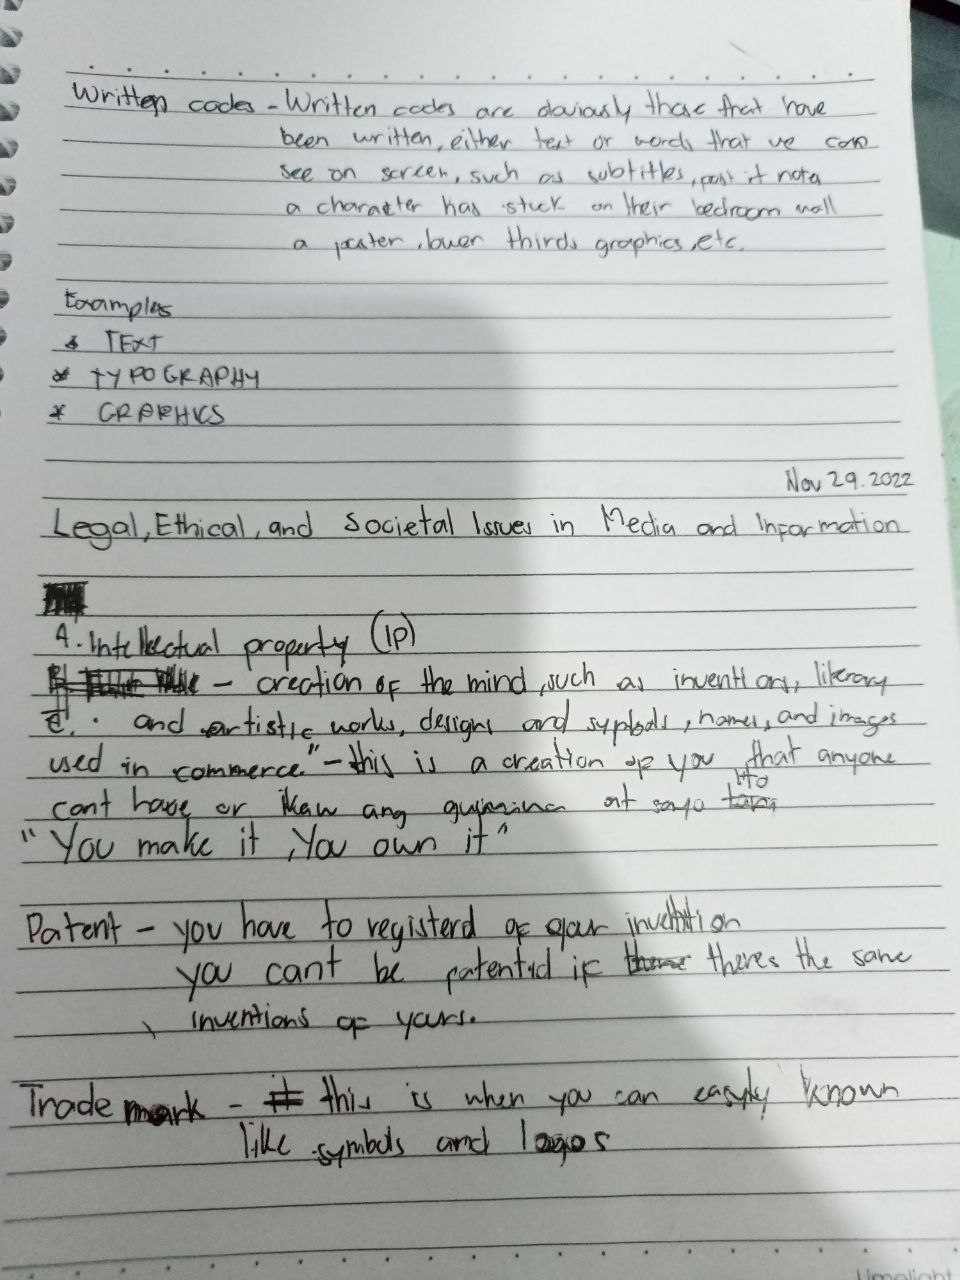 Written codes - Written codes are obviously those that have
been written, either text or words that we can
see on screen, such as subtitles, post it note
a character has stuck on their bedroom wall
a poster, lower thirds graphics, etc.
Examples
* TEXT
* TYPOGRAPHY
* GRAPHICS
Nov 29.2022
Legal, Ethical, and Societal Issues in Media and Information
A. Intellectual property (IP)
- creation of the mind, such as inventions, literary
and artistic works, designs and symbols, names, and images
used in commerce." - this is a creation of you that anyone
cant have or ikaw ang gumawa at sayo ito
"You make it, You own it"
Patent - you have to registerd of your invention
you cant be patented if theres the same
inventions of yours.
Trademark - this is when you can easyly known
like symbols and logos
Limelight